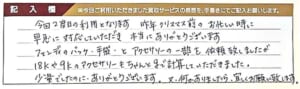 記入欄 ※今回ご利用いただきました買取サービスの感想を、字書きにてご記入お願いします。
今回2度目の利用となります 昨年クリスマス前のお忙しい時に
早急に対応していただき 本当にありがとうございます
フェンディのバック・手袋 と アクセサリーの一部を依頼致しましたが
18Kや9Kのアクセサリーもちゃんとお計算していただきました。
少量でしたのに、ありがとうございます。又、何かありましたら、宜しくお願い致します。